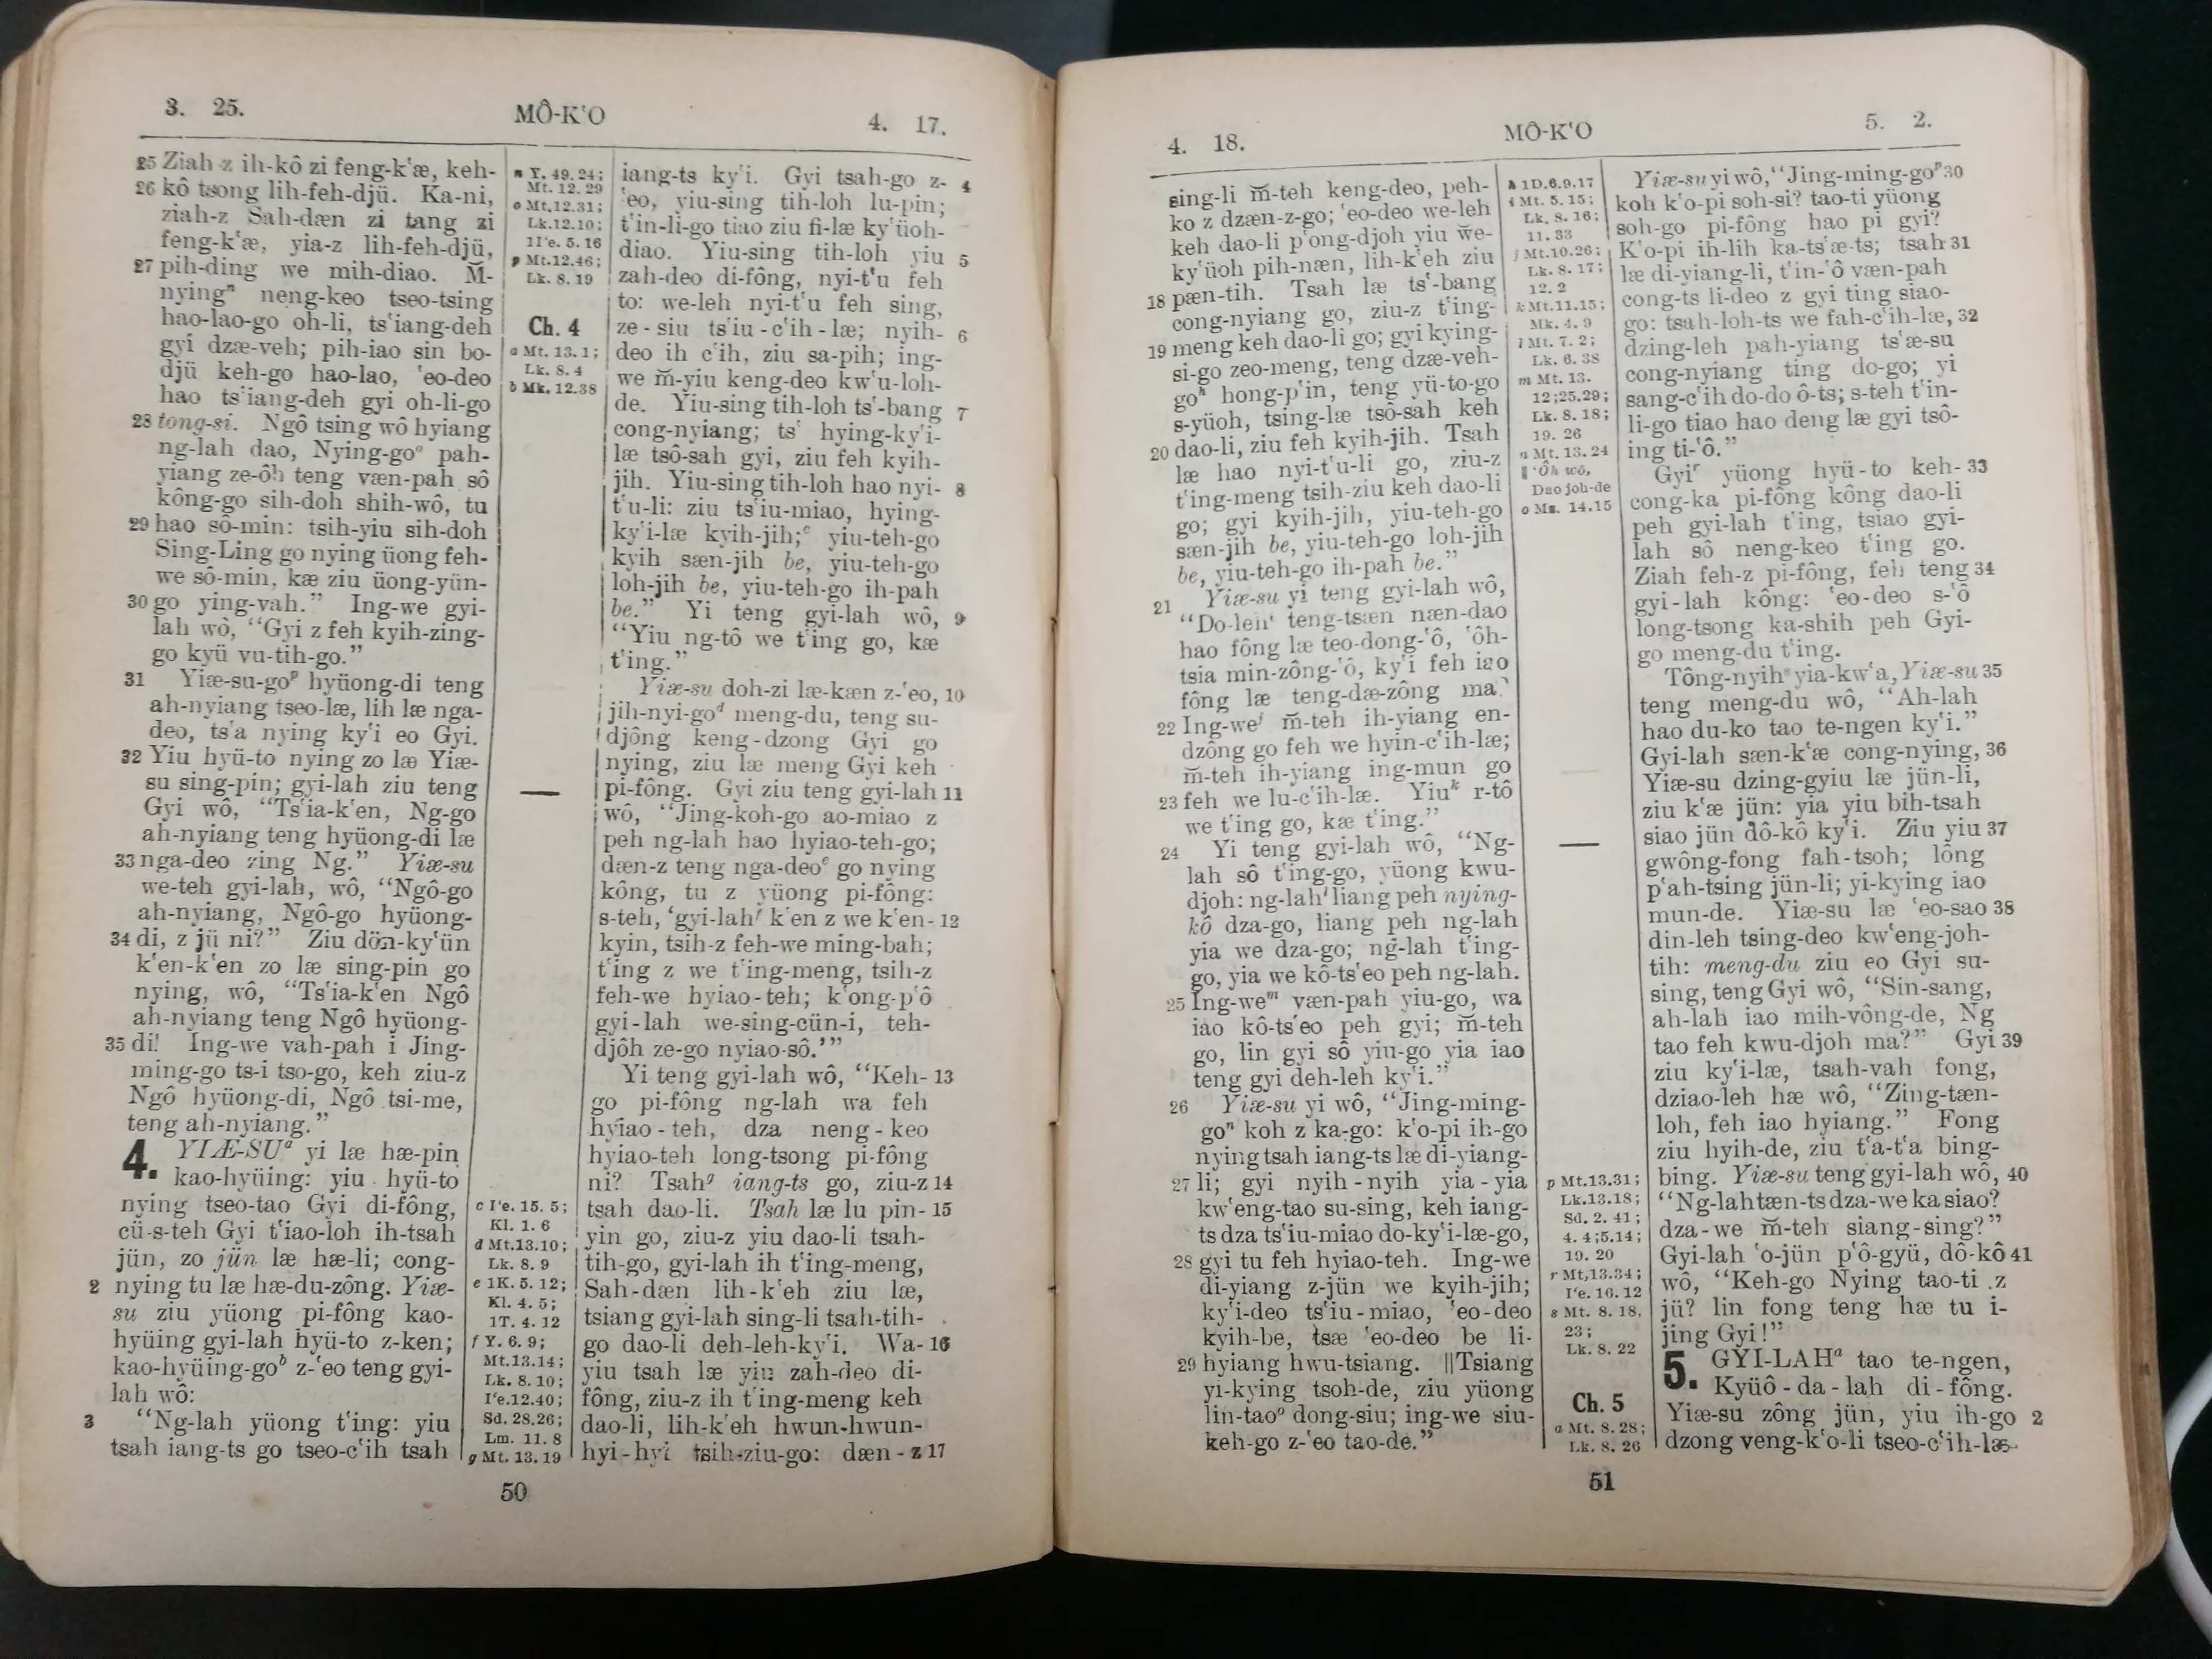 3. 25.
MÔ-KʻO
4. 17.
25 Ziah-z ih-kô zi feng-kʻæ, keh-
26 kô tsong lih-feh-djü. Ka-ni,
ziah-z Sah-dæn zi tang zi
feng-kʻæ, yia-z lih-feh-djü,
27 pih-ding we mih-diao. M̆-
nyingⁿ neng-keo tseo-tsing
hao-lao-go oh-li, tsʻiang-deh
gyi dzæ-veh; pih-iao sin bo-
djü keh-go hao-lao, ʻeo-deo
hao tsʻiang-deh gyi oh-li-go
28 tong-si. Ngô tsing wô hyiang
ng-lah dao, Nying-goᵒ pah-
yiang ze-ôh teng væn-pah sô
kông-go sih-doh shih-wô, tu
29 hao sô-min: tsih-yiu sih-doh
Sing-Ling go nying üong feh-
we sô-min, kæ ziu üong-yün-
30 go ying-vah.” Ing-we gyi-
lah wô, “Gyi z feh kyih-zing-
go kyü vu-tih-go.”
31 Yiæ-su-goᵖ hyüong-di teng
ah-nyiang tseo-læ, lih læ nga-
deo, tsʻa nying kyʻi eo Gyi.
32 Yiu hyü-to nying zo læ Yiæ-
su sing-pin; gyi-lah ziu teng
Gyi wô, “Tsʻia-kʻen, Ng-go
ah-nyiang teng hyüong-di læ
33 nga-deo zing Ng.” Yiæ-su
we-teh gyi-lah, wô, “Ngô-go
ah-nyiang, Ngô-go hyüong-
34 di, z jü ni?” Ziu dön-kyʻün
kʻen-kʻen zo læ sing-pin go
nying, wô, “Tsʻia-kʻen Ngô
ah-nyiang teng Ngô hyüong-
35 di! Ing-we vah-pah i Jing-
ming-go ts-i tso-go, keh ziu-z
Ngô hyüong-di, Ngô tsi-me,
teng ah-nyiang.”
4. YIÆ-SUᵃ yi læ hæ-pin
kao-hyüing: yiu hyü-to
nying tseo-tao Gyi di-fông,
cü-s-teh Gyi tʻiao-loh ih-tsah
jün, zo jün læ hæ-li; cong-
2 nying tu læ hæ-du-zông. Yiæ-
su ziu yüong pi-fông kao-
hyüing gyi-lah hyü-to z-ken;
kao-hyüing-goᵇ z-ʻeo teng gyi-
lah wô:
3 “Ng-lah yüong tʻing: yiu
tsah iang-ts go tseo-cʻih tsah
n Y. 49.24;
Mt. 12. 29
o Mt.12.31;
Lk.12.10;
1Iʻe. 5. 16
p Mt.12.46;
Lk. 8. 19
Ch. 4
a Mt. 13. 1;
Lk. 8. 4
b Mk. 12.38
c Iʻe. 15. 5;
Kl. 1. 6
d Mt.13.10;
Lk. 8. 9
e 1K. 5. 12;
Kl. 4. 5;
1T. 4. 12
f Y. 6. 9;
Mt.13.14;
Lk. 8. 10;
Iʻe.12.40;
Sd. 28.26;
Lm. 11. 8
g Mt. 13. 19
iang-ts kyʻi. Gyi tsah-go z- 4
ʻeo, yiu-sing tih-loh lu-pin;
tʻin-li-go tiao ziu fi-læ kyʻüoh-
diao. Yiu-sing tih-loh yiu 5
zah-deo di-fông, nyi-tʻu feh
to: we-leh nyi-tʻu feh sing,
ze-siu tsʻiu-cʻih-læ; nyih- 6
deo ih cʻih, ziu sa-pih; ing-
we m̆-yiu keng-deo kwʻu-loh-
de. Yiu-sing tih-loh tsʻ-bang 7
cong-nyiang; tsʻ hying-kyʻi-
læ tsô-sah gyi, ziu feh kyih-
jih. Yiu-sing tih-loh hao nyi- 8
tʻu-li: ziu tsʻiu-miao, hying-
kyʻi-læ kyih-jih;ᶜ yiu-teh-go
kyih sæn-jih be, yiu-teh-go
loh-jih be, yiu-teh-go ih-pah
be.” Yi teng gyi-lah wô, 9
“Yiu ng-tô we tʻing go, kæ
tʻing.”
Yiæ-su doh-zi læ-kæn z-ʻeo, 10
jih-nyi-goᵈ meng-du, teng su-
djông keng-dzong Gyi go
nying, ziu læ meng Gyi keh
pi-fông. Gyi ziu teng gyi-lah 11
wô, “Jing-koh-go ao-miao z
peh ng-lah hao hyiao-teh-go;
dæn-z teng nga-deoᵉ go nying
kông, tu z yüong pi-fông:
s-teh, ‘gyi-lahᶠ kʻen z we kʻen- 12
kyin, tsih-z feh-we ming-bah;
tʻing z we tʻing-meng, tsih-z
feh-we hyiao-teh; kʻong-pʻô
gyi-lah we-sing-cün-i, teh-
djôh ze-go nyiao-sô.’”
Yi teng gyi-lah wô, “Keh- 13
go pi-fông ng-lah wa feh
hyiao-teh, dza neng-keo
hyiao-teh long-tsong pi-fông
ni? Tsahᵍ iang-ts go, ziu-z 14
tsah dao-li. Tsah læ lu pin- 15
yin go, ziu-z yiu dao-li tsah-
tih-go, gyi-lah ih tʻing-meng,
Sah-dæn lih-kʻeh ziu læ,
tsiang gyi-lah sing-li tsah-tih-
go dao-li deh-leh-kyʻi. Wa- 16
yiu tsah læ yiu zah-deo di-
fông, ziu-z ih tʻing-meng keh
dao-li, lih-kʻeh hwun-hwun-
hyi-hyi tsih-ziu-go: dæn-z 17
50
4. 18.
MÔ-KʻO
5. 2.
sing-li m̆-teh keng-deo, peh-
ko z dzæn-z-go; ʻeo-deo we-leh
keh dao-li pʻong-djoh yiu we-
kyʻüoh pih-næn, lih-kʻeh ziu
18 pæn-tih. Tsah læ tsʻ-bang
cong-nyiang go, ziu-z tʻing-
19 meng keh dao-li go; gyi kying-
si-go zeo-meng, teng dzæ-veh-
goʰ hong-pʻin, teng yü-to-go
s-yüoh, tsing-læ tsô-sah keh
20 dao-li, ziu feh kyih-jih. Tsah
læ hao nyi-tʻu-li go, ziu-z
tʻing-meng tsih-ziu keh dao-li
go; gyi kyih-jih, yiu-teh-go
sæn-jih be, yiu-teh-go loh-jih
be, yiu-teh-go ih-pah be.”
21 Yiæ-su yi teng gyi-lah wô,
“Do-lehⁱ teng-tsæn næn-dao
hao fông læ teo-dong-ʻô, ʻôh-
tsia min-zông-ʻô, kyʻi feh iao
fông læ teng-dæ-zông ma?
22 Ing-weʲ m̆-teh ih-yiang en-
dzông go feh we hyin-cʻih-læ;
m̆-teh ih-yiang ing-mun go
23 feh we lu-cʻih-læ. Yiuᵏ r-tô
we tʻing go, kæ tʻing.”
24 Yi teng gyi-lah wô, “Ng-
lah sô tʻing-go, yüong kwu-
djoh: ng-lahˡ liang peh nying-
kô dza-go, liang peh ng-lah
yia we dza-go; ng-lah tʻing-
go, yia we kô-tsʻeo peh ng-lah.
25 Ing-weᵐ væn-pah yiu-go, wa
iao kô-tsʻeo peh gyi; m̆-teh
go, lin gyi sô yiu-go yia iao
teng gyi deh-leh kyʻi.”
26 Yiæ-su yi wô, “Jing-ming-
goⁿ koh z ka-go: kʻo-pi ih-go
nying tsah iang-ts læ di-yiang-
27 li; gyi nyih-nyih yia-yia
kwʻeng-tao su-sing, keh iang-
ts dza tsʻiu-miao do-kyʻi-læ-go,
28 gyi tu feh hyiao-teh. Ing-we
di-yiang z-jün we kyih-jih;
kyʻi-deo tsʻiu-miao, ʻeo-deo
kyih-be, tsæ ʻeo-deo be li-
29 hyiang hwu-tsiang. ‖Tsiang
yi-kying tsoh-de, ziu yüong
lin-taoᵒ dong-siu; ing-we siu-
keh-go z-ʻeo tao-de.”
h 1D.6.9.17
i Mt. 5. 15;
Lk. 8. 16;
11. 33
j Mt.10.26;
Lk. 8. 17;
12. 2
k Mt.11.15;
Mk. 4. 9
l Mt. 7. 2;
Lk. 6. 38
m Mt. 13.
12;25.29;
Lk. 8. 18;
19. 26
n Mt. 13. 24
‖ ʻÔh wô,
Dao joh-de
o Ms. 14.15
p Mt.13.31;
Lk.13.18;
Sd. 2. 41;
4. 4;5.14;
19. 20
r Mt,13.34;
Iʻe. 16. 12
s Mt. 8. 18.
23;
Lk. 8. 22
Ch. 5
a Mt. 8. 28;
Lk. 8. 26
Yiæ-su yi wô, “Jing-ming-goᵖ 30
koh kʻo-pi soh-si? tao-ti yüong
soh-go pi-fông hao pi gyi?
Kʻo-pi ih-lih ka-tsʻæ-ts; tsah 31
læ di-yiang-li, tʻin-ʻô væn-pah
cong-ts li-deo z gyi ting siao-
go: tsah-loh-ts we fah-cʻih-læ, 32
dzing-leh pah-yiang tsʻæ-su
cong-nyiang ting do-go; yi
sang-cʻih do-do ô-ts; s-teh tʻin-
li-go tiao hao deng læ gyi tsô-
ing ti-ʻô.”
Gyiʳ yüong hyü-to keh- 33
cong-ka pi-fông kông dao-li
peh gyi-lah tʻing, tsiao gyi-
lah sô neng-keo tʻing go.
Ziah feh-z pi-fông, feh teng 34
gyi-lah kông: ʻeo-deo s-ʻô
long-tsong ka-shih peh Gyi-
go meng-du tʻing.
Tông-nyihˢ yia-kwʻa, Yiæ-su 35
teng meng-du wô, “Ah-lah
hao du-ko tao te-ngen kyʻi.”
Gyi-lah sæn-kʻæ cong-nying, 36
Yiæ-su dzing-gyiu læ jün-li,
ziu kʻæ jün: yia yiu bih-tsah
siao jün dô-kô kyʻi. Ziu yiu 37
gwông-fong fah-tsoh; lông
pʻah-tsing jün-li; yi-kying iao
mun-de. Yiæ-su læ ʻeo-sao 38
din-leh tsing-deo kwʻeng-joh-
tih: meng-du ziu eo Gyi su-
sing, teng Gyi wô, “Sin-sang,
ah-lah iao mih-vông-de, Ng
tao feh kwu-djoh ma?” Gyi 39
ziu kyʻi-læ, tsah-vah fong,
dziao-leh hæ wô, “Zing-tæn-
loh, feh iao hyiang.” Fong
ziu hyih-de, ziu tʻa-tʻa bing-
bing. Yiæ-su teng gyi-lah wô, 40
“Ng-lah tæn-ts dza-we ka siao?
dza-we m̆-teh siang-sing?”
Gyi-lah ʻo-jün pʻô-gyü, dô-kô 41
wô, “Keh-go Nying tao-ti z
jü? lin fong teng hæ tu i-
jing Gyi!”
5. GYI-LAHᵃ tao te-ngen,
Kyüô-da-lah di-fông.
Yiæ-su zông jün, yiu ih-go 2
dzong veng-kʻo-li tseo-cʻih-læ-
51